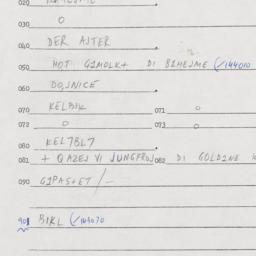 020
030 0
040 DER AJTER
050 HOT GIMOLK+ DI BIHEJME (/144010
060 DOJNICE
070 KELBIK 071 0
072 0 073 0
080 KEL7BL7
081 + QAZEJ VI JUNGFROJ 082 DI GOLDINE
090 GIPAS+ET /–
901 BIKL (/144070